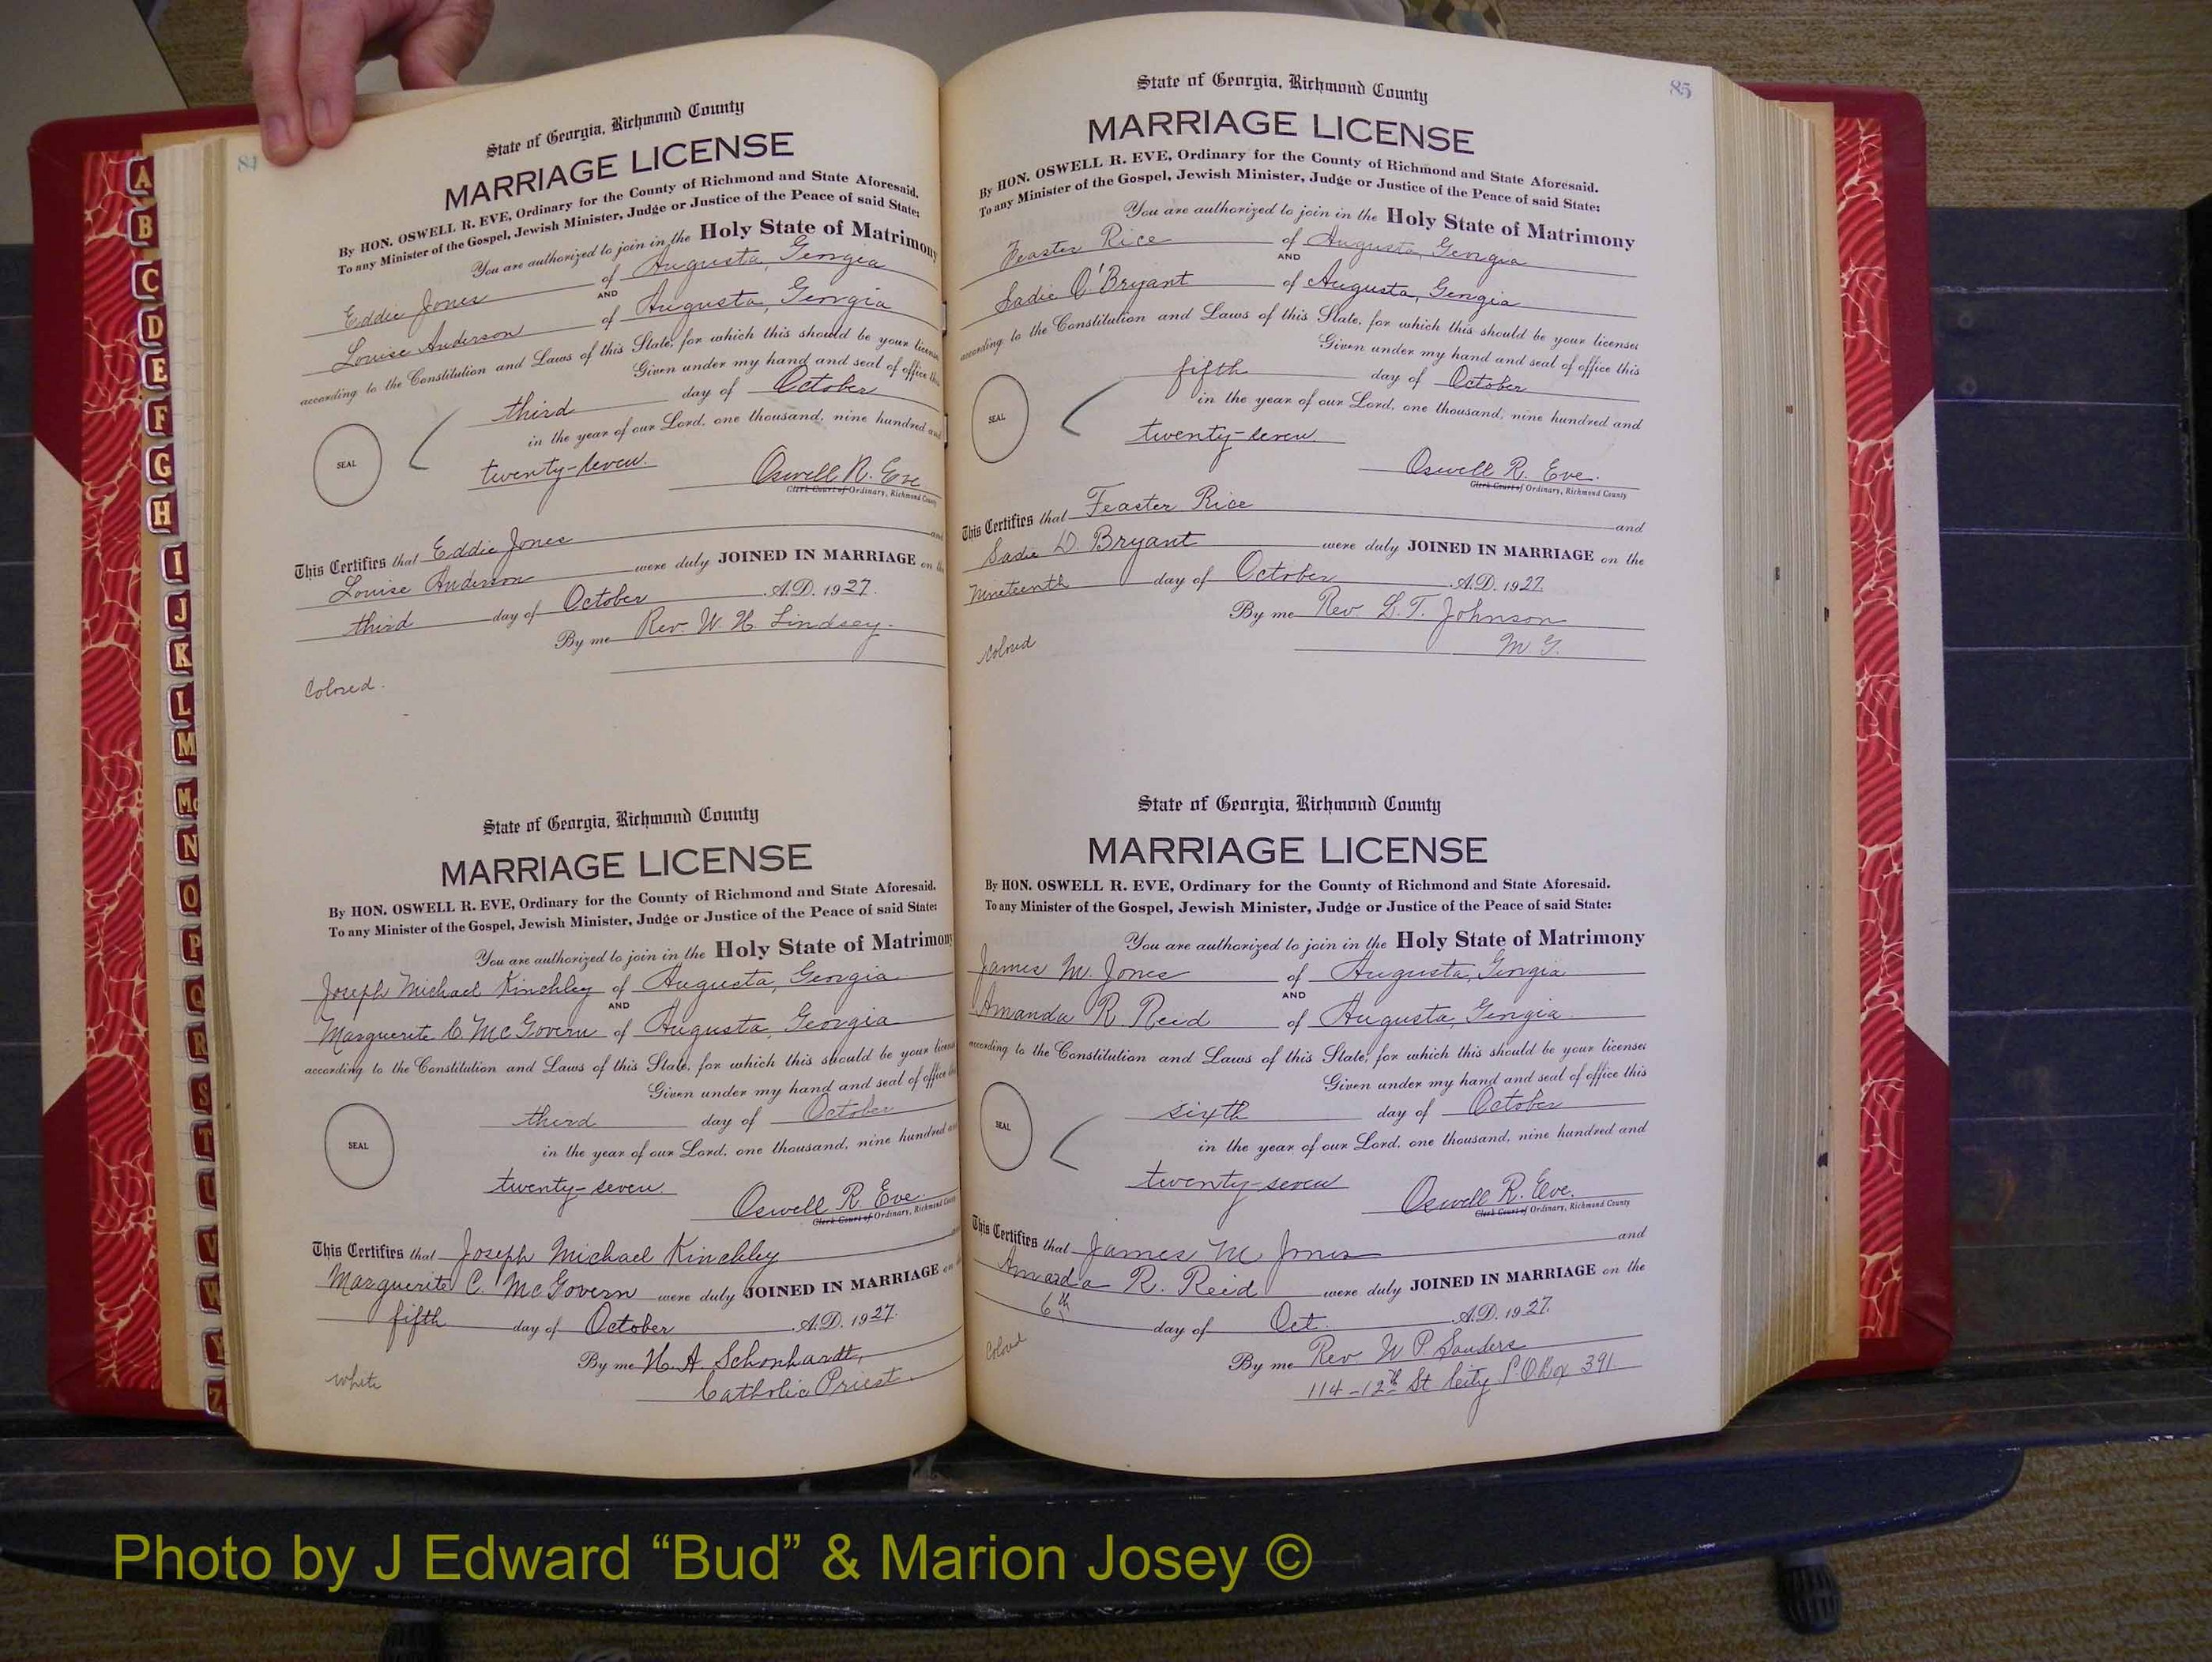 84
State of Georgia, Richmond County
MARRIAGE LICENSE
By HON. OSWELL R. EVE, Ordinary for the County of Richmond and State Aforesaid.
To any Minister of the Gospel, Jewish Minister, Judge or Justice of the Peace of said State:
You are authorized to join in the Holy State of Matrimony
Eddie Jones of Augusta, Georgia
AND
Louise Anderson of Augusta, Georgia
according to the Constitution and Laws of this State, for which this should be your license
Given under my hand and seal of office this
third day of October
in the year of our Lord, one thousand, nine hundred and
SEAL
twenty-seven.
Oswell R. Eve
Clerk Court of Ordinary, Richmond County
This Certifies that Eddie Jones and
Louise Anderson were duly JOINED IN MARRIAGE on the
third day of October A.D. 1927.
By me Rev. W. H. Lindsey.
Colored.
State of Georgia, Richmond County
MARRIAGE LICENSE
By HON. OSWELL R. EVE, Ordinary for the County of Richmond and State Aforesaid.
To any Minister of the Gospel, Jewish Minister, Judge or Justice of the Peace of said State:
You are authorized to join in the Holy State of Matrimony
Joseph Michael Kinchley of Augusta, Georgia
AND
Marguerite C McGovern of Augusta, Georgia
according to the Constitution and Laws of this State, for which this should be your license
Given under my hand and seal of office this
third day of October
SEAL
in the year of our Lord, one thousand, nine hundred and
twenty-seven.
Oswell R. Eve.
Clerk Court of Ordinary, Richmond County
This Certifies that Joseph Michael Kinchley
Marguerite C. McGovern were duly JOINED IN MARRIAGE on
fifth day of October A.D. 1927.
By me H. A. Schonhardt,
Catholic Priest.
white
85
State of Georgia, Richmond County
MARRIAGE LICENSE
By HON. OSWELL R. EVE, Ordinary for the County of Richmond and State Aforesaid.
To any Minister of the Gospel, Jewish Minister, Judge or Justice of the Peace of said State:
You are authorized to join in the Holy State of Matrimony
Feaster Rice of Augusta, Georgia
AND
Sadie O'Bryant of Augusta, Georgia
according to the Constitution and Laws of this State, for which this should be your license:
Given under my hand and seal of office this
fifth day of October
in the year of our Lord, one thousand, nine hundred and
SEAL
twenty-seven
Oswell R. Eve.
Clerk Court of Ordinary, Richmond County
This Certifies that Feaster Rice and
Sadie O Bryant were duly JOINED IN MARRIAGE on the
Nineteenth day of October A.D. 1927.
By me Rev. L. T. Johnson
M G.
Colored
State of Georgia, Richmond County
MARRIAGE LICENSE
By HON. OSWELL R. EVE, Ordinary for the County of Richmond and State Aforesaid.
To any Minister of the Gospel, Jewish Minister, Judge or Justice of the Peace of said State:
You are authorized to join in the Holy State of Matrimony
James M. Jones of Augusta, Georgia
AND
Amanda R. Reid of Augusta, Georgia.
according to the Constitution and Laws of this State, for which this should be your license:
Given under my hand and seal of office this
sixth day of October
SEAL
in the year of our Lord, one thousand, nine hundred and
twenty-seven
Oswell R. Eve.
Clerk Court of Ordinary, Richmond County
This Certifies that James M Jones and
Amanda R. Reid were duly JOINED IN MARRIAGE on the
6th day of Oct. A.D. 1927.
Colored
By me Rev W P. Sanders
114-12th St City P.O. Box 391
A
B
C
D
E
F
G
H
I
J
K
L
M
Mc
N
O
P
Q
R
S
T
U
V
W
Y
Z
Photo by J Edward “Bud” & Marion Josey ©